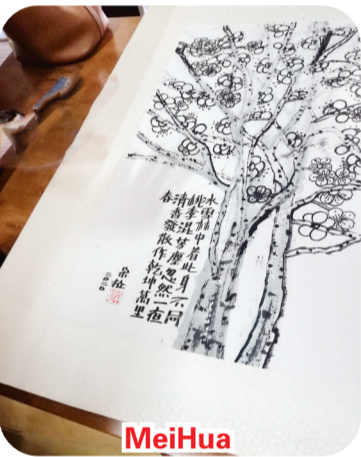 冰雪林中着此身不同
桃李混芳塵忽然一夜
清香發散作乾坤萬里
春
二〇二〇
MeiHua